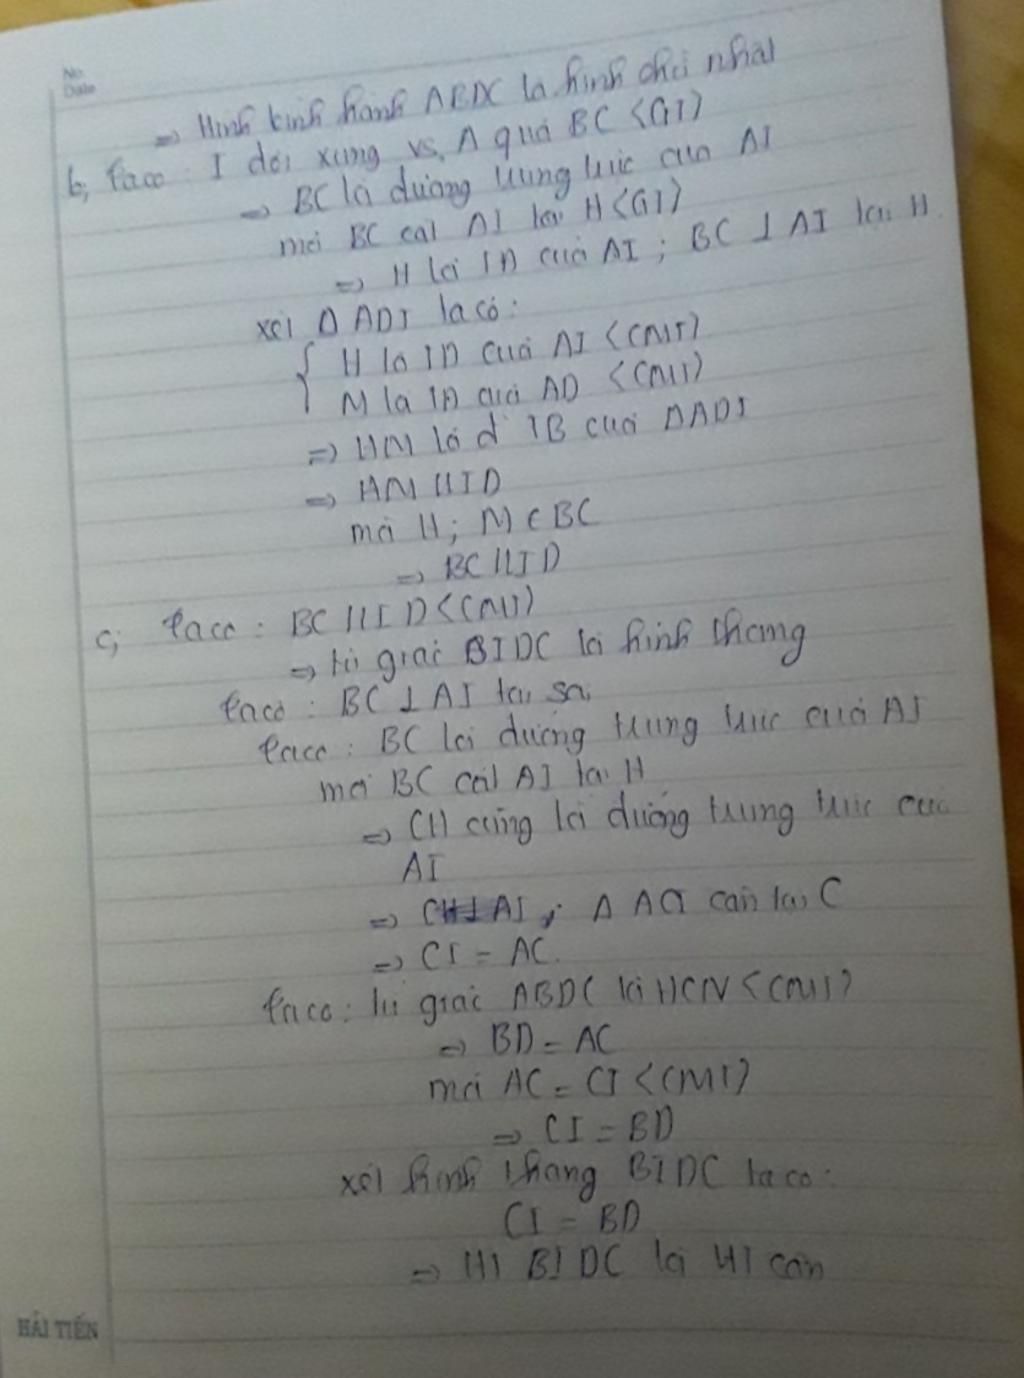 No.
Date
=> Hình bình hành ABDC là hình chữ nhật
b, Ta có: I đối xứng vs A qua BC <GT>
=> BC là đường trung trực của AI
mà BC cắt AI tại H <GT>
=> H là TĐ của AI ; BC ⊥ AI tại H.
xét Δ ADI ta có:
{ H là TĐ của AI <CMT>
M là TĐ của AD <CMT>
=> HM là đ TB của ΔADI
=> HM // ID
mà H; M ∈ BC
=> BC // ID
c, Ta có: BC // ID <CMT>
=> tứ giác BIDC là hình thang
Ta có: BC ⊥ AI tại
Ta có: BC là đường trung trực của AI
mà BC cắt AI tại H
=> CH cũng là đường trung trực của
AI
=> CH ⊥ AI ; Δ ACI cân tại C
=> CI = AC.
Ta có: tứ giác ABDC là HCN <CMT>
=> BD = AC
mà AC = CI <CMT>
=> CI = BD
xét hình thang BIDC ta có:
CI = BD
=> HT BIDC là HT cân
HẢI TIẾN